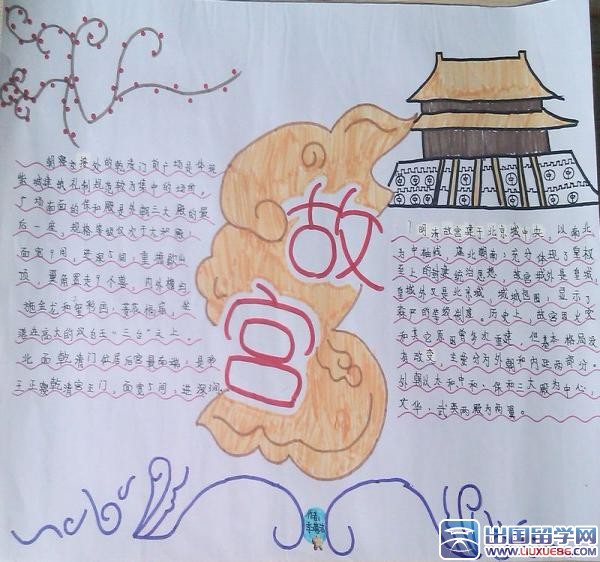 故宫
朝寝交接处的乾清门前广场是体现
皇城建筑礼制规范较为集中的场所,
广场南面的保和殿是外朝三大殿的最
后一座,规格等级仅次于太和殿,
面宽9间,进深5间,重檐歇山
顶,垂角置走9个兽,内外檐均
施金龙和玺彩画,菱花槅扇,坐
落在高大的汉白玉“三台”之上。
北面乾清门位居后宫最南端,是帝
王正寝乾清宫正门,面宽5间,进深3间,
明清故宫建于北京城中央,以南北
为中轴线,座北朝南,充分体现了皇权
至上的封建统治思想。故宫城外是皇城,
皇城外又是北京城,城城包围,显示了
森严的等级制度。历史上,故宫因火灾
和其它原因曾多次重建,但基本格局没
有改变,主要分为外朝和内廷两部分。
外朝以太和、中和、保和三大殿为中心,
文华、武英两殿为两翼。
出国留学网
WWW.LIUXUE86.COM